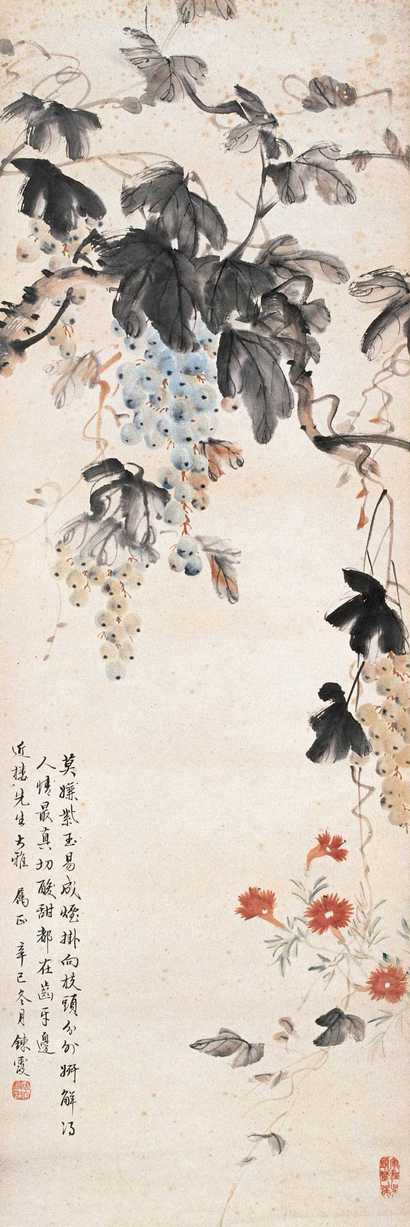 莫嫌紫玉易成煙掛向枝頭分外妍解得
人情最真切酸甜都在齒牙邊
近樓先生大雅 屬正 辛巳冬月 鍊霞